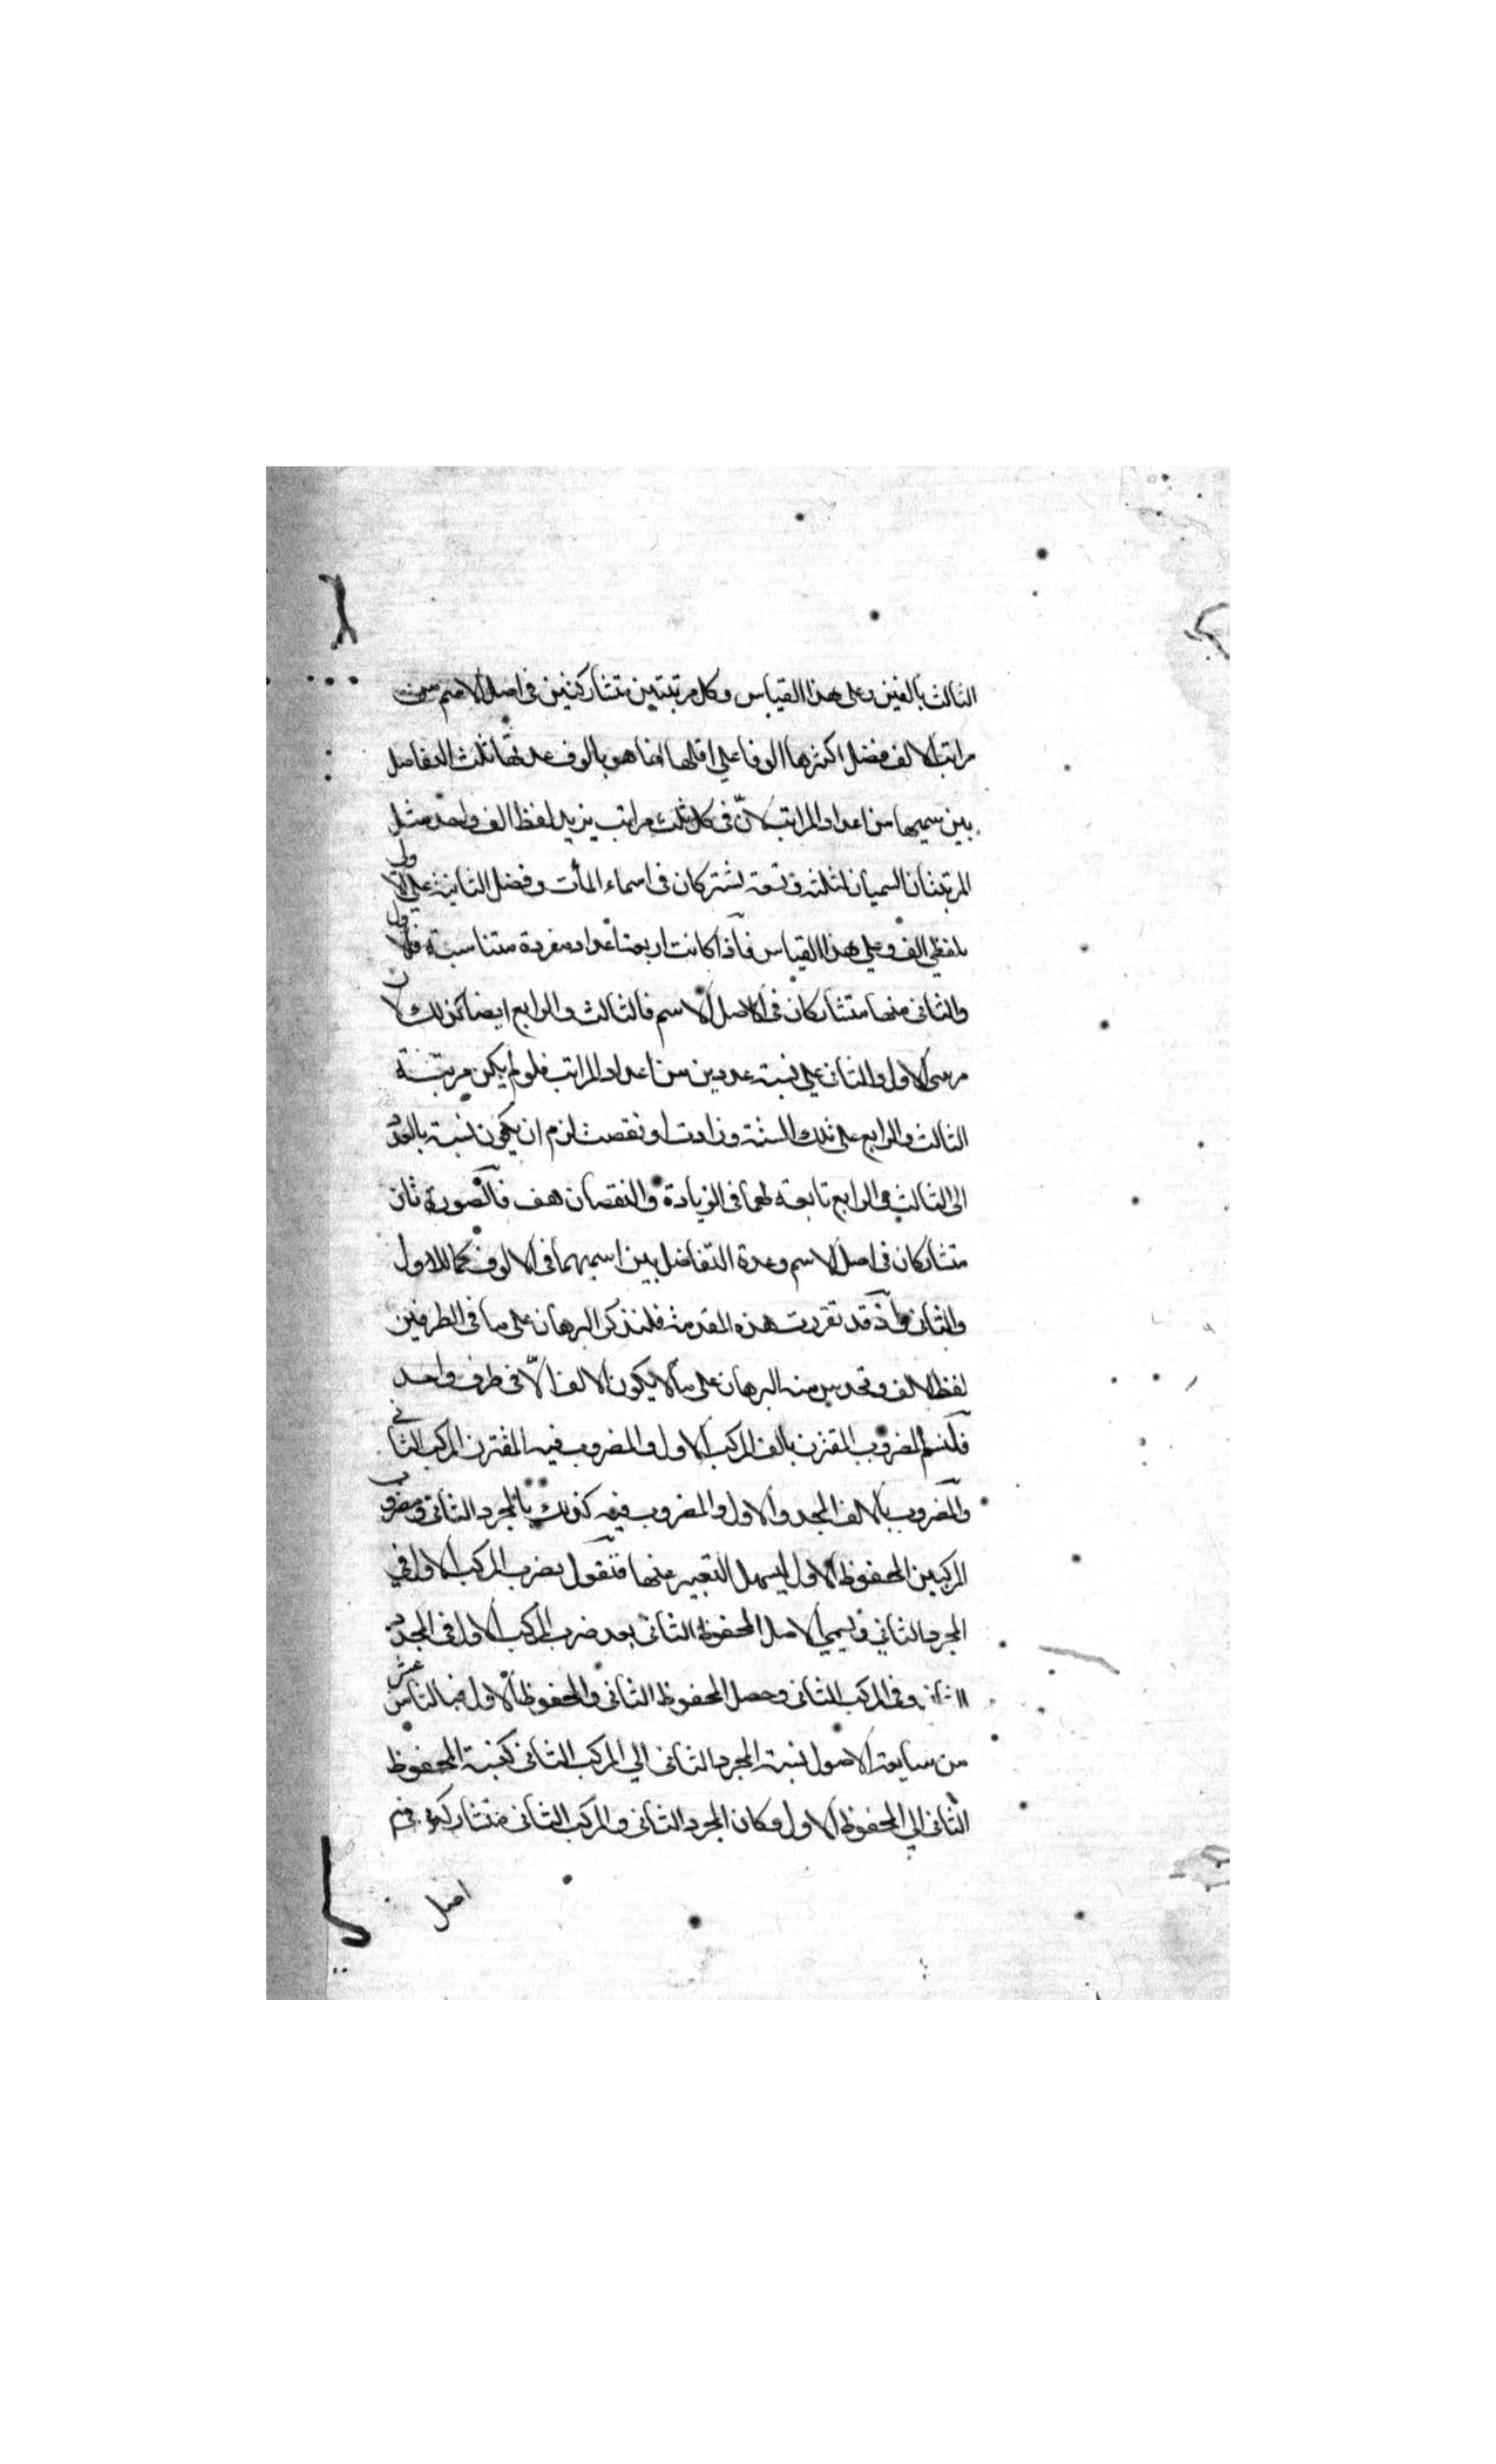 الثالث بالفين وعلى هذا القياس وكل مرتبتين تتشاركتين في اصل الاسم من
مراتب الالف فضل اكثرها الوفا على اقلها انما هو بالوف عدتها ثلث التفاضل
بين سميهما من اعداد المراتب لانّ في كل ثلث مراتب يزيد لفظ الف واحد مثل
المرتبتان السميان لثلثة وتسعة تشتركان في اسماء المأت وفضل الثانية على الاولى
بلفظي الف وعلى هذا القياس فاذا كانت اربعة اعداد مفردة متناسبة فالاول
والثاني منها متشاركان في الاصل الاسم فالثالث والرابع ايضا كذلك لان
مرسى الاول والثاني على نسبة عددين من اعداد المراتب فلو لم يكن مرتبة
الثالث والرابع على تلك النسبة وزادت او نقصت لزم ان يكون نسبة بالعدد
الى الثالث والرابع تابعة لهما في الزيادة والنقصان هف فالصورة ثان
متشاركان في اصل الاسم وعدة التفاضل بين اسميهما في الالوف كما للاول
والثاني واذ قد تقررت هذه المقدمة فلنذكر البرهان على ما في الطرفين
لفظ الالف وتحدس منه البرهان على ما لا يكون الالف الّا في طرف واحد
فلنسم المضروب المقترن بالف المركب الاول والمضروب فيه المقترن المركب الثاني
والمضروب بالالف المجرد والاول والمضروب فيه كذلك بالمجرد الثاني ومضروب
المركبين المحفوظ الاول ليسهل التعبير عنها فنقول بضرب المركب الاول في
المجرد الثاني ويسمي الاصل المحفوظ الثاني بعد ضرب المركب الاول في المجرد
الثاني وفي المركب الثاني وحصل المحفوظ الثاني والمحفوظ الاول فبالتاسع عشر
من سابعة الاصول نسبة المجرد الثاني الي المركب الثاني كنسبة المحفوظ
الثاني الي المحفوظ الاول وكان المجرد الثاني والمركب الثاني متشاركين في
اصل